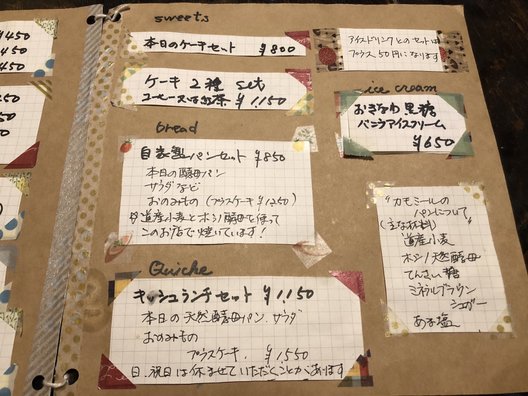 ¥450
¥450
450
sweets
本日のケーキセット ¥800
ケーキ 2種 set
コーヒー又は紅茶 ¥1,150
bread
自家製パンセット ¥850
本日の酵母パン
サラダなど
おのみもの (プラスケーキ ¥1,250)
道産小麦とホシノ酵母で使って
このお店で焼いています!
Quiche
キッシュランチセット ¥1,150
本日の天然酵母パン、サラダ
おのみもの
プラスケーキ. ¥1,550
日、祝日は休ませていただくことがあります
アイスドリンクとのセットは
プラス50円になります
ice cream
おきなわ黒糖
バニラアイスクリーム
¥650
"カモミールの
パンについて"
(主な材料)
道産小麦
ホシノ天然酵母
てんさい糖
ミネラルブラウン
シュガー
あら塩